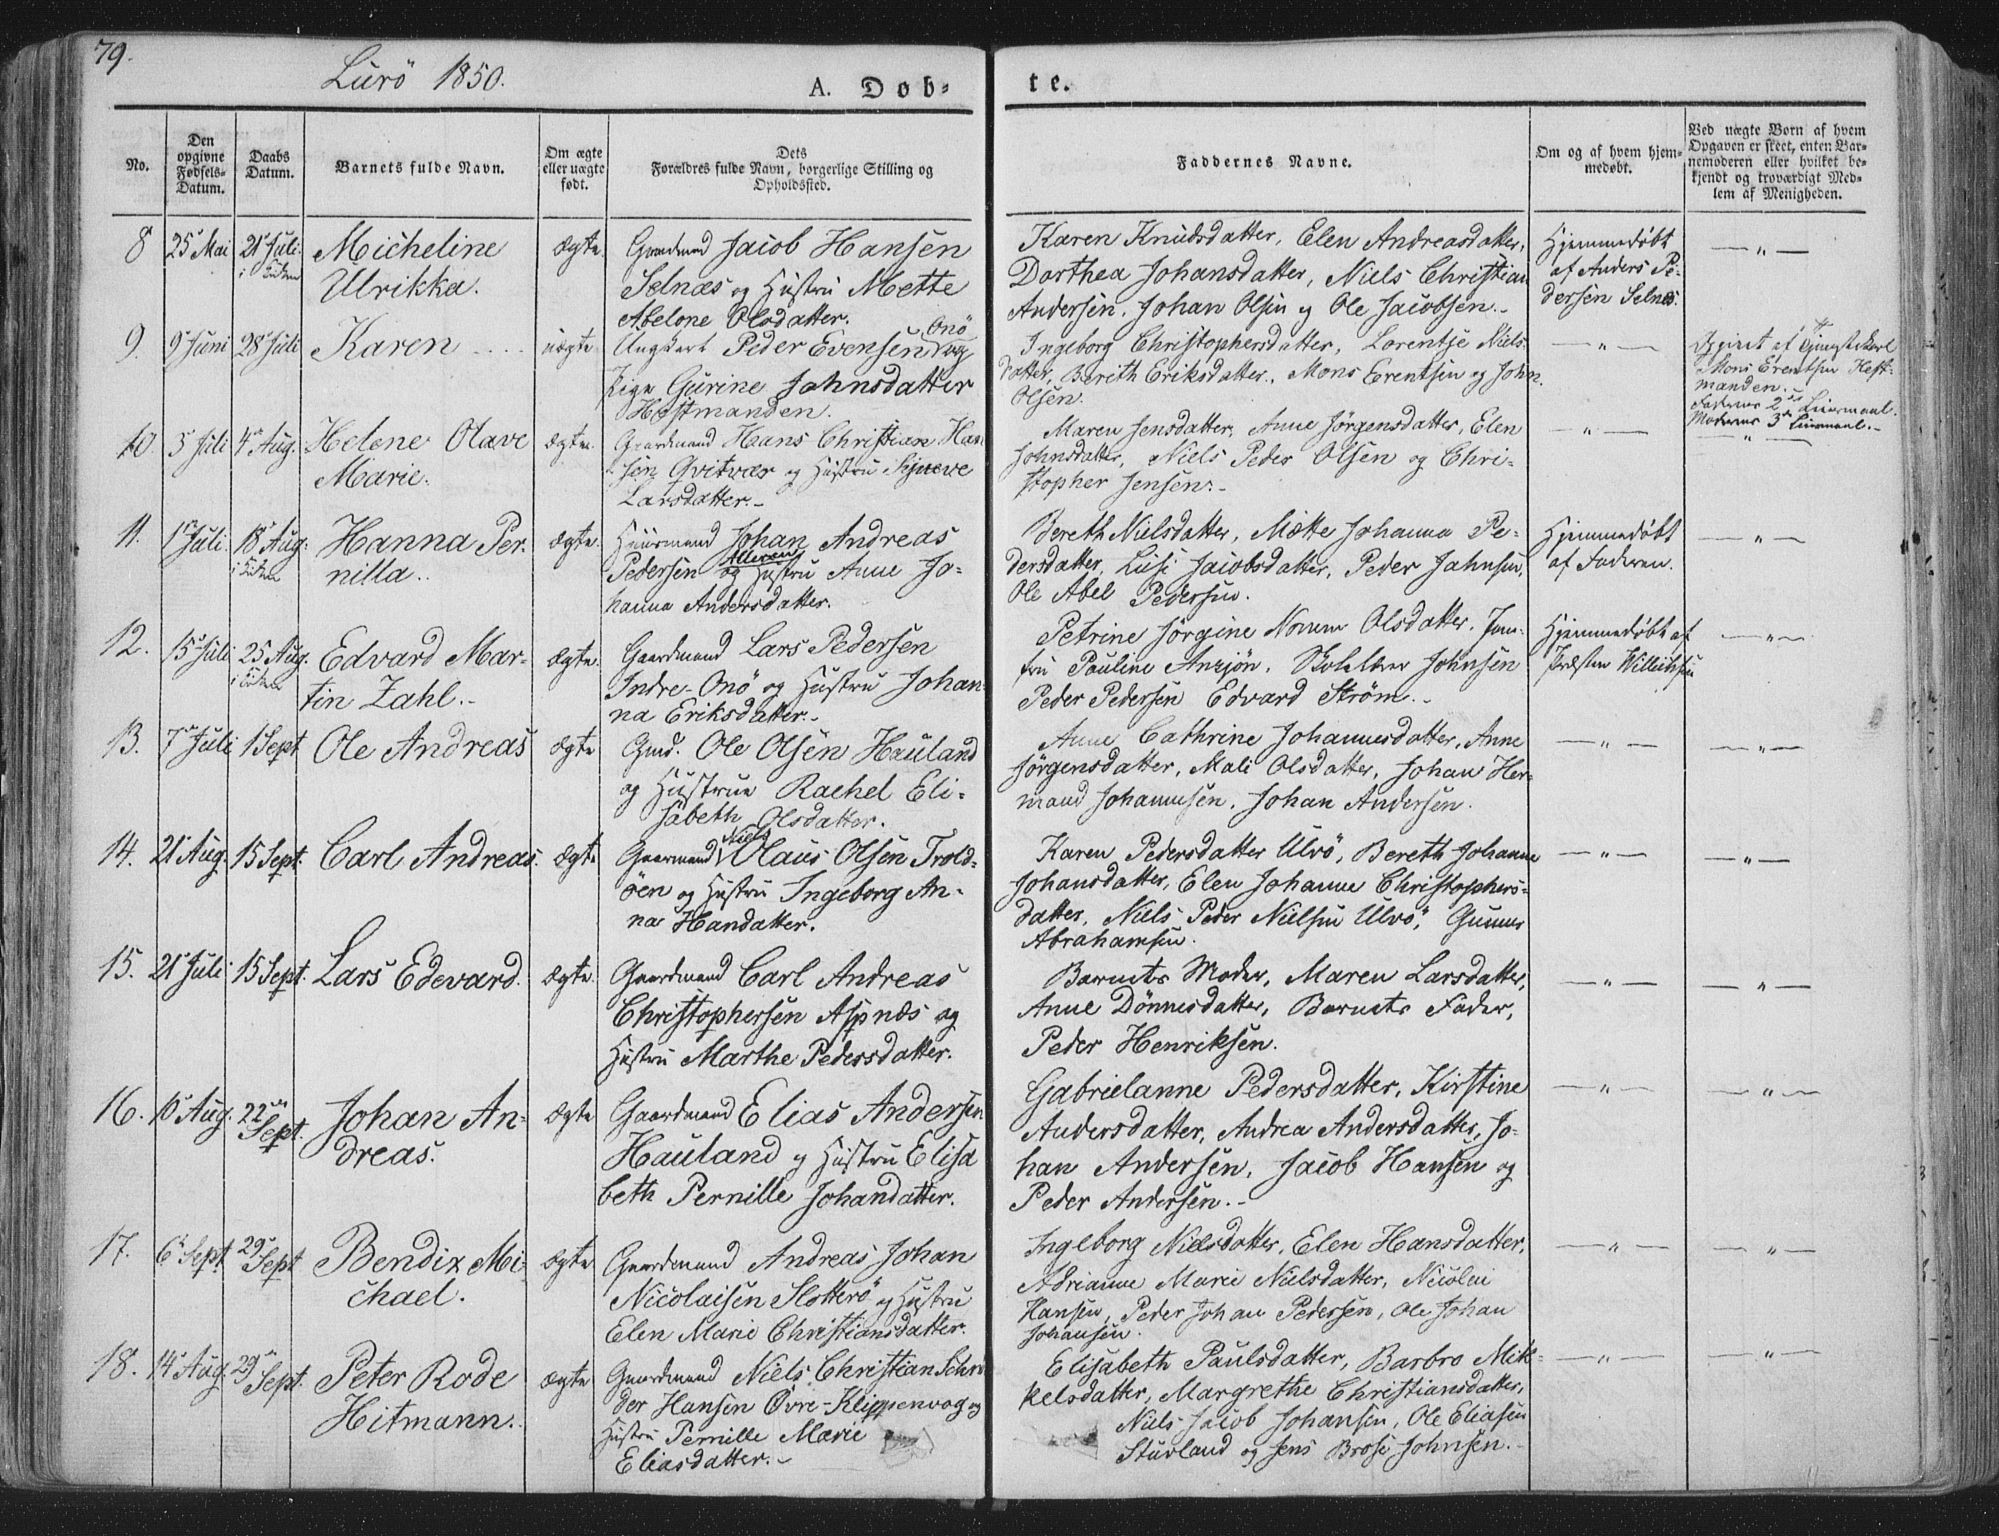 79.
Lurö 1850.
A. Døb-
te.
No.
Den opgivne Fødsels-Datum.
Daabs Datum.
Barnets fulde Navn.
Om ægte eller uægte født.
Dets Forældres fulde Navn, borgerlige Stilling og Opholdssted.
Faddernes Navne.
Om og af hvem hjem-medøbt.
Ved uægte Born af hvem Opgaven er skeet, enten Bar-nemoderen eller hvilket be-kjendt og troværdigt Med-lem af Menigheden.
8 25 Mai 21 Juli Micheline ægte Gaardmand Jacob Hansen
i Kirken Ulrikka. Selnæs og Hustru Mette
Abelone Olsdatter.
Karen Knudsdatter, Elen Andreasdatter,
Dorthea Johansdatter, Niels Christian
Andersen, Johan Olsen og Ole Jacobsen.-
Hjemmedøbt
af Anders Pe-
dersen Selnes.
— " —
9. 9 Juni 28 Juli Karen uægte Ungkarl Peder Evensen Onö og
Pige Gurine Johnsdatter
Hestmanden.
Ingeborg Christophersdatter, Lorentse Niels-
datter, Berith Eriksdatter, Mons Erentsen og John
Olsen.
— " —
Opgivet af
Mons Erentsen Hest-
manden.
Faderens 2det Leiermaal.
Moderens 3die Leiermaal.-
10 3 Juli 4 Aug. Helene Olave ægte Gaardmand Hans Christian Han-
Marie. sen Qvitvær og Hustru
Larsdatter.-
Maren Jensdatter, Anne Jørgensdatter, Elen
Johnsdatter, Niels Peder Olsen og Chri-
stopher Jensen.-
— " — — " —
11. 1 Juli 18 Aug. Hanna Per- ægte. Huusmand Johan Andreas
i Kirken nilla. Pedersen og Hustru Anne Jo-
hanna Andersdatter.
Bereth Nielsdatter, Mætte Johanna Pe-
dersdatter, Lusi Jacobsdatter, Peder Jahnsen,
Ole Abel Pedersen.
Hjemmedøbt
af Faderen.
— " —
12. 15 Juli 25 Aug. Edvard Mar- ægte. Gaardmand Lars Pedersen
i Kirken tin Zahl.- Indre-Onö og Hustru Johan-
na Eriksdatter.-
Petrine Jörgine Olsdatter, Jom-
fru Pauline Johnsen
Peder Pedersen Edvard Ström.-
Hjemmedøbt af
Præsten
— " —
13. 7 Juli 1 Sept Ole Andreas ægte Gmd. Ole Olsen Hauland
og Hustrue Rachel Eli-
sabeth Olsdatter.
Anne Cathrine Johannesdatter, Anne
Jørgensdatter, Mali Olsdatter, Johan Her-
mand Johannesen, Johan Andersen.
— " — — " —
14. 21 Aug. 15 Sept. Carl Andreas. ægte Gaarmand Niels Olaus Olsen Trold-
öen og Hustru Ingeborg An-
na Handatter.
Karen Pedersdatter Ulvö, Bereth Johanne
Johansdatter, Elen Johanne Christophers-
datter, Niels Peder Nielsen Ulvö, Gunner
Abrahamsen.
— " — — " —
15. 21 Juli 15 Sept. Lars Edevard. ægte. Gaardmand Carl Andreas
Christophersen Aspnæs og
Hustru Marthe Pedersdatter.
Barnets Moder, Maren Larsdatter,
Anne Dönnesdatter, Barnets Fader,
Peder Henriksen.
— " — — " —
16. 10 Aug. 22 Sept. Johan An- ægte Gaardmand Elias Andersen
dreas. Hauland og Hustru Elisa
beth Pernille Johandatter.
Gabrielanne Pedersdatter, Kirstine
Andersdatter, Andrea Andersdatter, Jo-
han Andersen, Jacob Hansen og
Peder Andersen.-
— " — — " —
17. 6 Sept. 29 Sept Bendix Mi- ægte. Gaardmand Andreas Johan
chael. Nicolaisen Slotterö og Hustru
Elen Marie Christiansdatter.
Ingeborg Nielsdatter, Elen Hansdatter,
Adrianne Marie Nielsdatter, Nicolai
Hansen, Peder Johan Pedersen, Ole Johan
Johansen.
— " — — " —
18. 14 Aug. 29 Sept. Peter Rode ægte Gaardmand Niels Christian Schrö
Hitmann. der Hansen Övre-Klippenvog og
Hustru Pernille Marie
Eliasdatter.-
Elisabeth Paulsdatter, Barbro Mik-
kelsdatter, Margrethe Christiansdatter,
Niels Jacob Johansen, Ole Eliasen
Sturland og Jens Brose Johnsen.-
— " — — " —